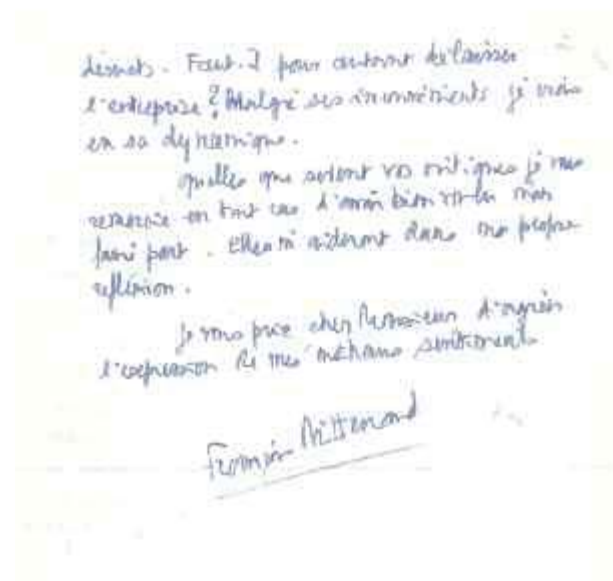 Faut-il pour autant délaisser
l'entreprise ? Malgré ses inconvénients je crois
en sa dynamique.
quelles que soient vos critiques je vous
remercie en tout cas d'avoir bien voulu m'en
faire part. Elles m'aideront dans ma propre
réflexion.
Je vous prie cher Monsieur d'agréer
l'expression de mes meilleurs sentiments
François Mitterrand